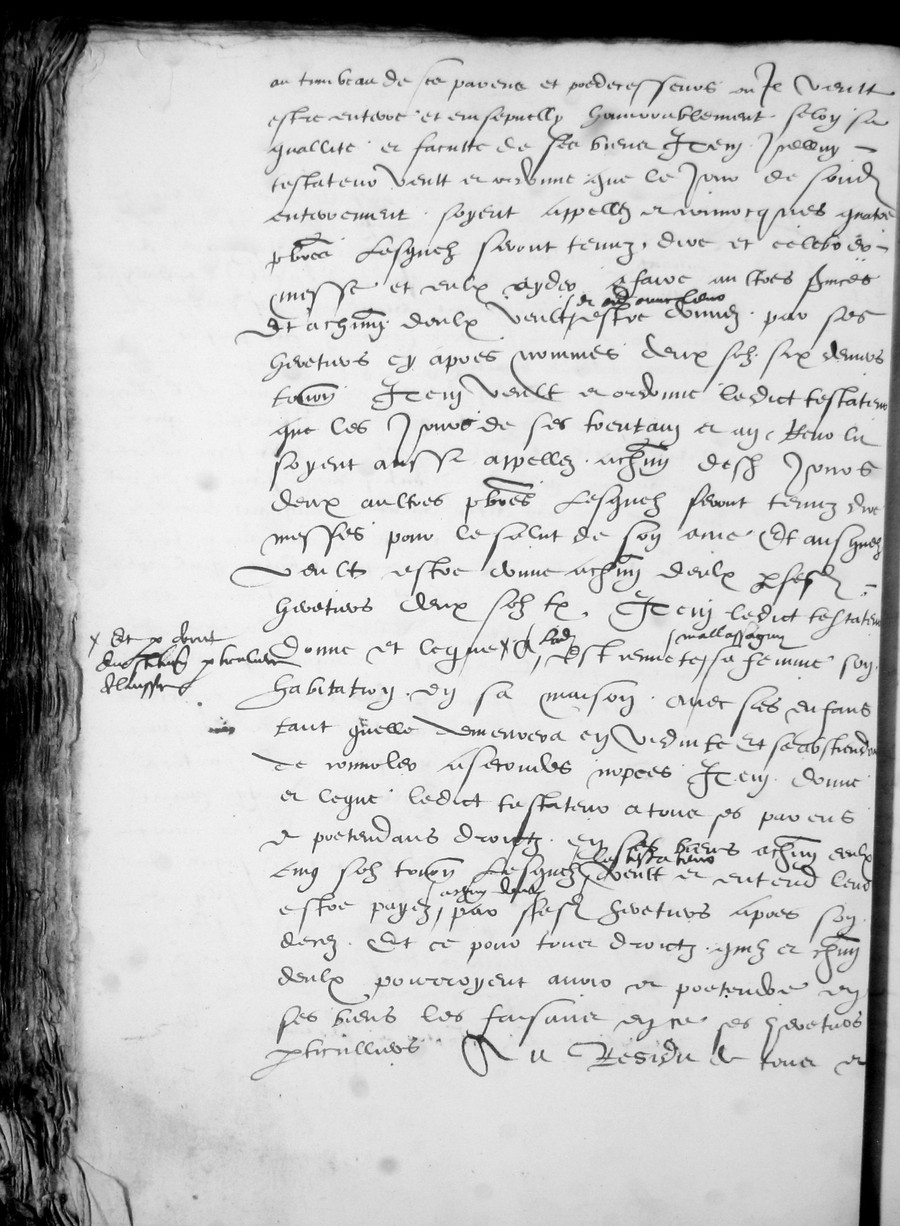 au tumbeau de ses parens et predecesseurs ou Il veult
estre enterre et ensepuelly honnorablement selon sa
quallite et faculte de ses biens Item Icelluy
testateur veult et ordonne que le Jour de sond
enterrement soyent appellez et convocques quatre
pbres Lesquelz seront tenuz dire et celebrer
messe et eulx ayder a faire aultres
Et a chun deulx veult et ordonne estre donne par ses
heretiers cy apres nommes deux solz six deniers
tourn Item veult et ordonne ledict testateur
que les Jours de ses trentain et an Revolu
soyent aussi appellez a chun desd Jours
deux aultres pbres Lesquelz seront tenuz dire
messes pour le salut de son ame Et ausquelz
veult estre donne a chun deulx p sesd
heretiers deux solz tz. Item ledict testateur
donne et legue x a lad sa femme son
x Et p droict
habitation en sa maison avec ses enfans
tant quelle demeurera en viduite et se abstiendra
de convoler a secondes nopces Item donne
et legue ledict testateur a tous ses parens
et pretendans droictz en ses biens a chun deulx
cinq solz tourn Lesquelz veult et entend leur
estre payez a chun deulx par sesd heretiers apres son
deces. Et ce pour tous droictz quilz et chun
deulx pourroyent avoir et pretendre en
ses biens les faisant en ce ses heretiers
pticulliers Au Residu de tous et